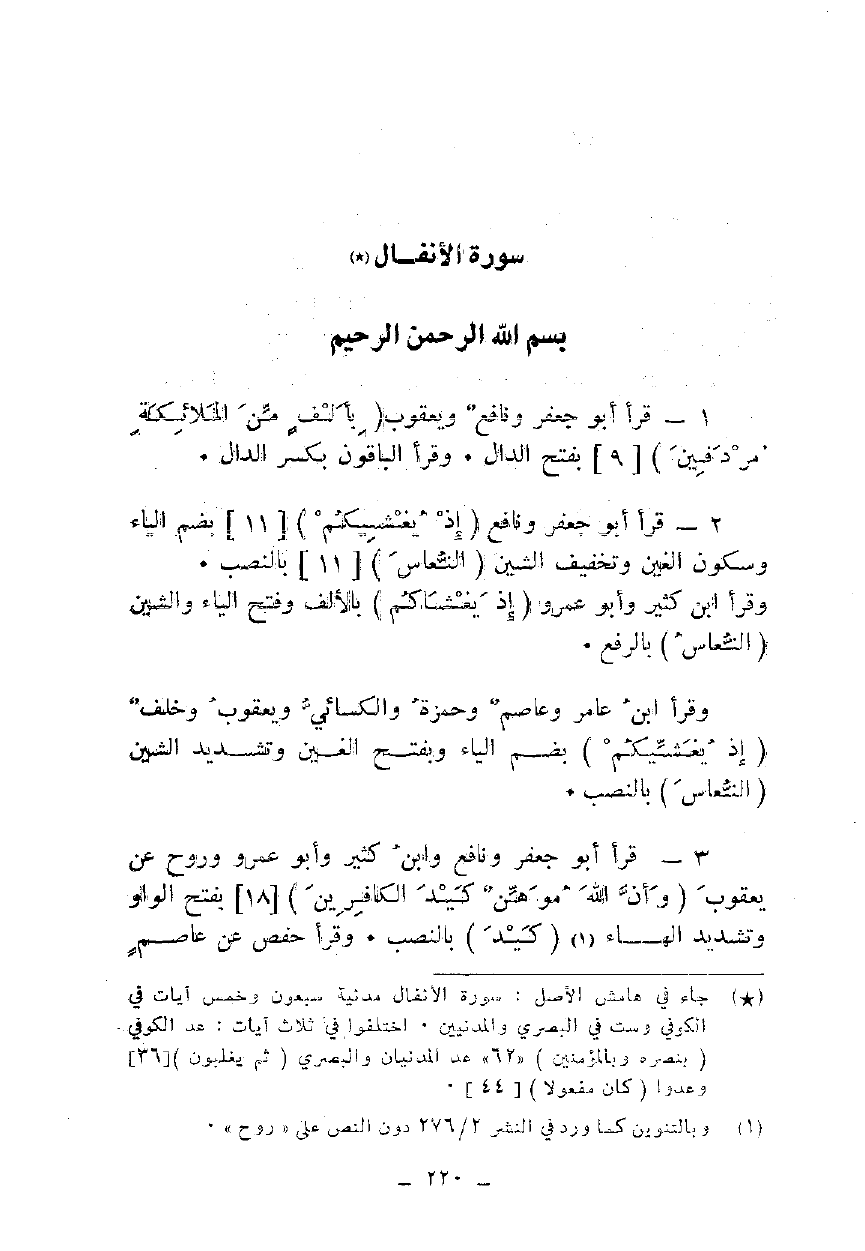 سورة الأنفـال (★)
بسم الله الرحمن الرحيم
١ — قرأ أبو جعفر ونافعٌ ويعقوب( بِأَلْفٍ مِّنَ الْمَلَائِكَةِ
مُرْدَفِينَ ) [ ٩ ] بفتح الدال ٠ وقرأ الباقون بكسر الدال ٠
٢ — قرأ أبو جعفر ونافع ( إِذْ يُغْشِيكُمْ ) [ ١١ ] بضم الياء
وسكون الغين وتخفيف الشين ( النُّعاسَ ) [ ١١ ] بالنصب ٠
وقرأ ابن كثير وأبو عمرو ( إِذ يَغْشَاكُم ) بالألف وفتح الياء والشين
( النُّعاسُ ) بالرفع ٠
وقرأ ابنُ عامر وعاصمٌ وحمزةُ والكسائيُّ ويعقوبُ وخلفٌ
( إِذ يُغَشِّيكُمْ ) بضـم الياء وبفتـح الغـين وتشـديد الشين
( النُّعاسَ ) بالنصب ٠
٣ — قرأ أبو جعفر ونافع وابنُ كثير وأبو عمرو وروح عن
يعقوبَ ( وَأَنَّ اللهَ مُوَهِّنٌ كَيْدَ الكافِرِينَ ) [١٨] بفتح الواو
وتشديد الهـاء (١) ( كَيْدَ ) بالنصب ٠ وقرأ حفص عن عاصمٍ
(★) جاء في هامش الأصل : سورة الأنفال مدنية سبعون وخمس آيات في
الكوفي وست في البصري والمدنيين ٠ اختلفوا في ثلاث آيات : عد الكوفي
( بنصره وبالمؤمنين ) «٦٢» عد المدنيان والبصري ( ثم يغلبون )[٣٦]
وعدوا ( كان مفعولا ) [ ٤٤ ] ٠
(١) وبالتنوين كما ورد في النشر ٢/٢٧٦ دون النص على « روح » ٠
— ٢٢٠ —